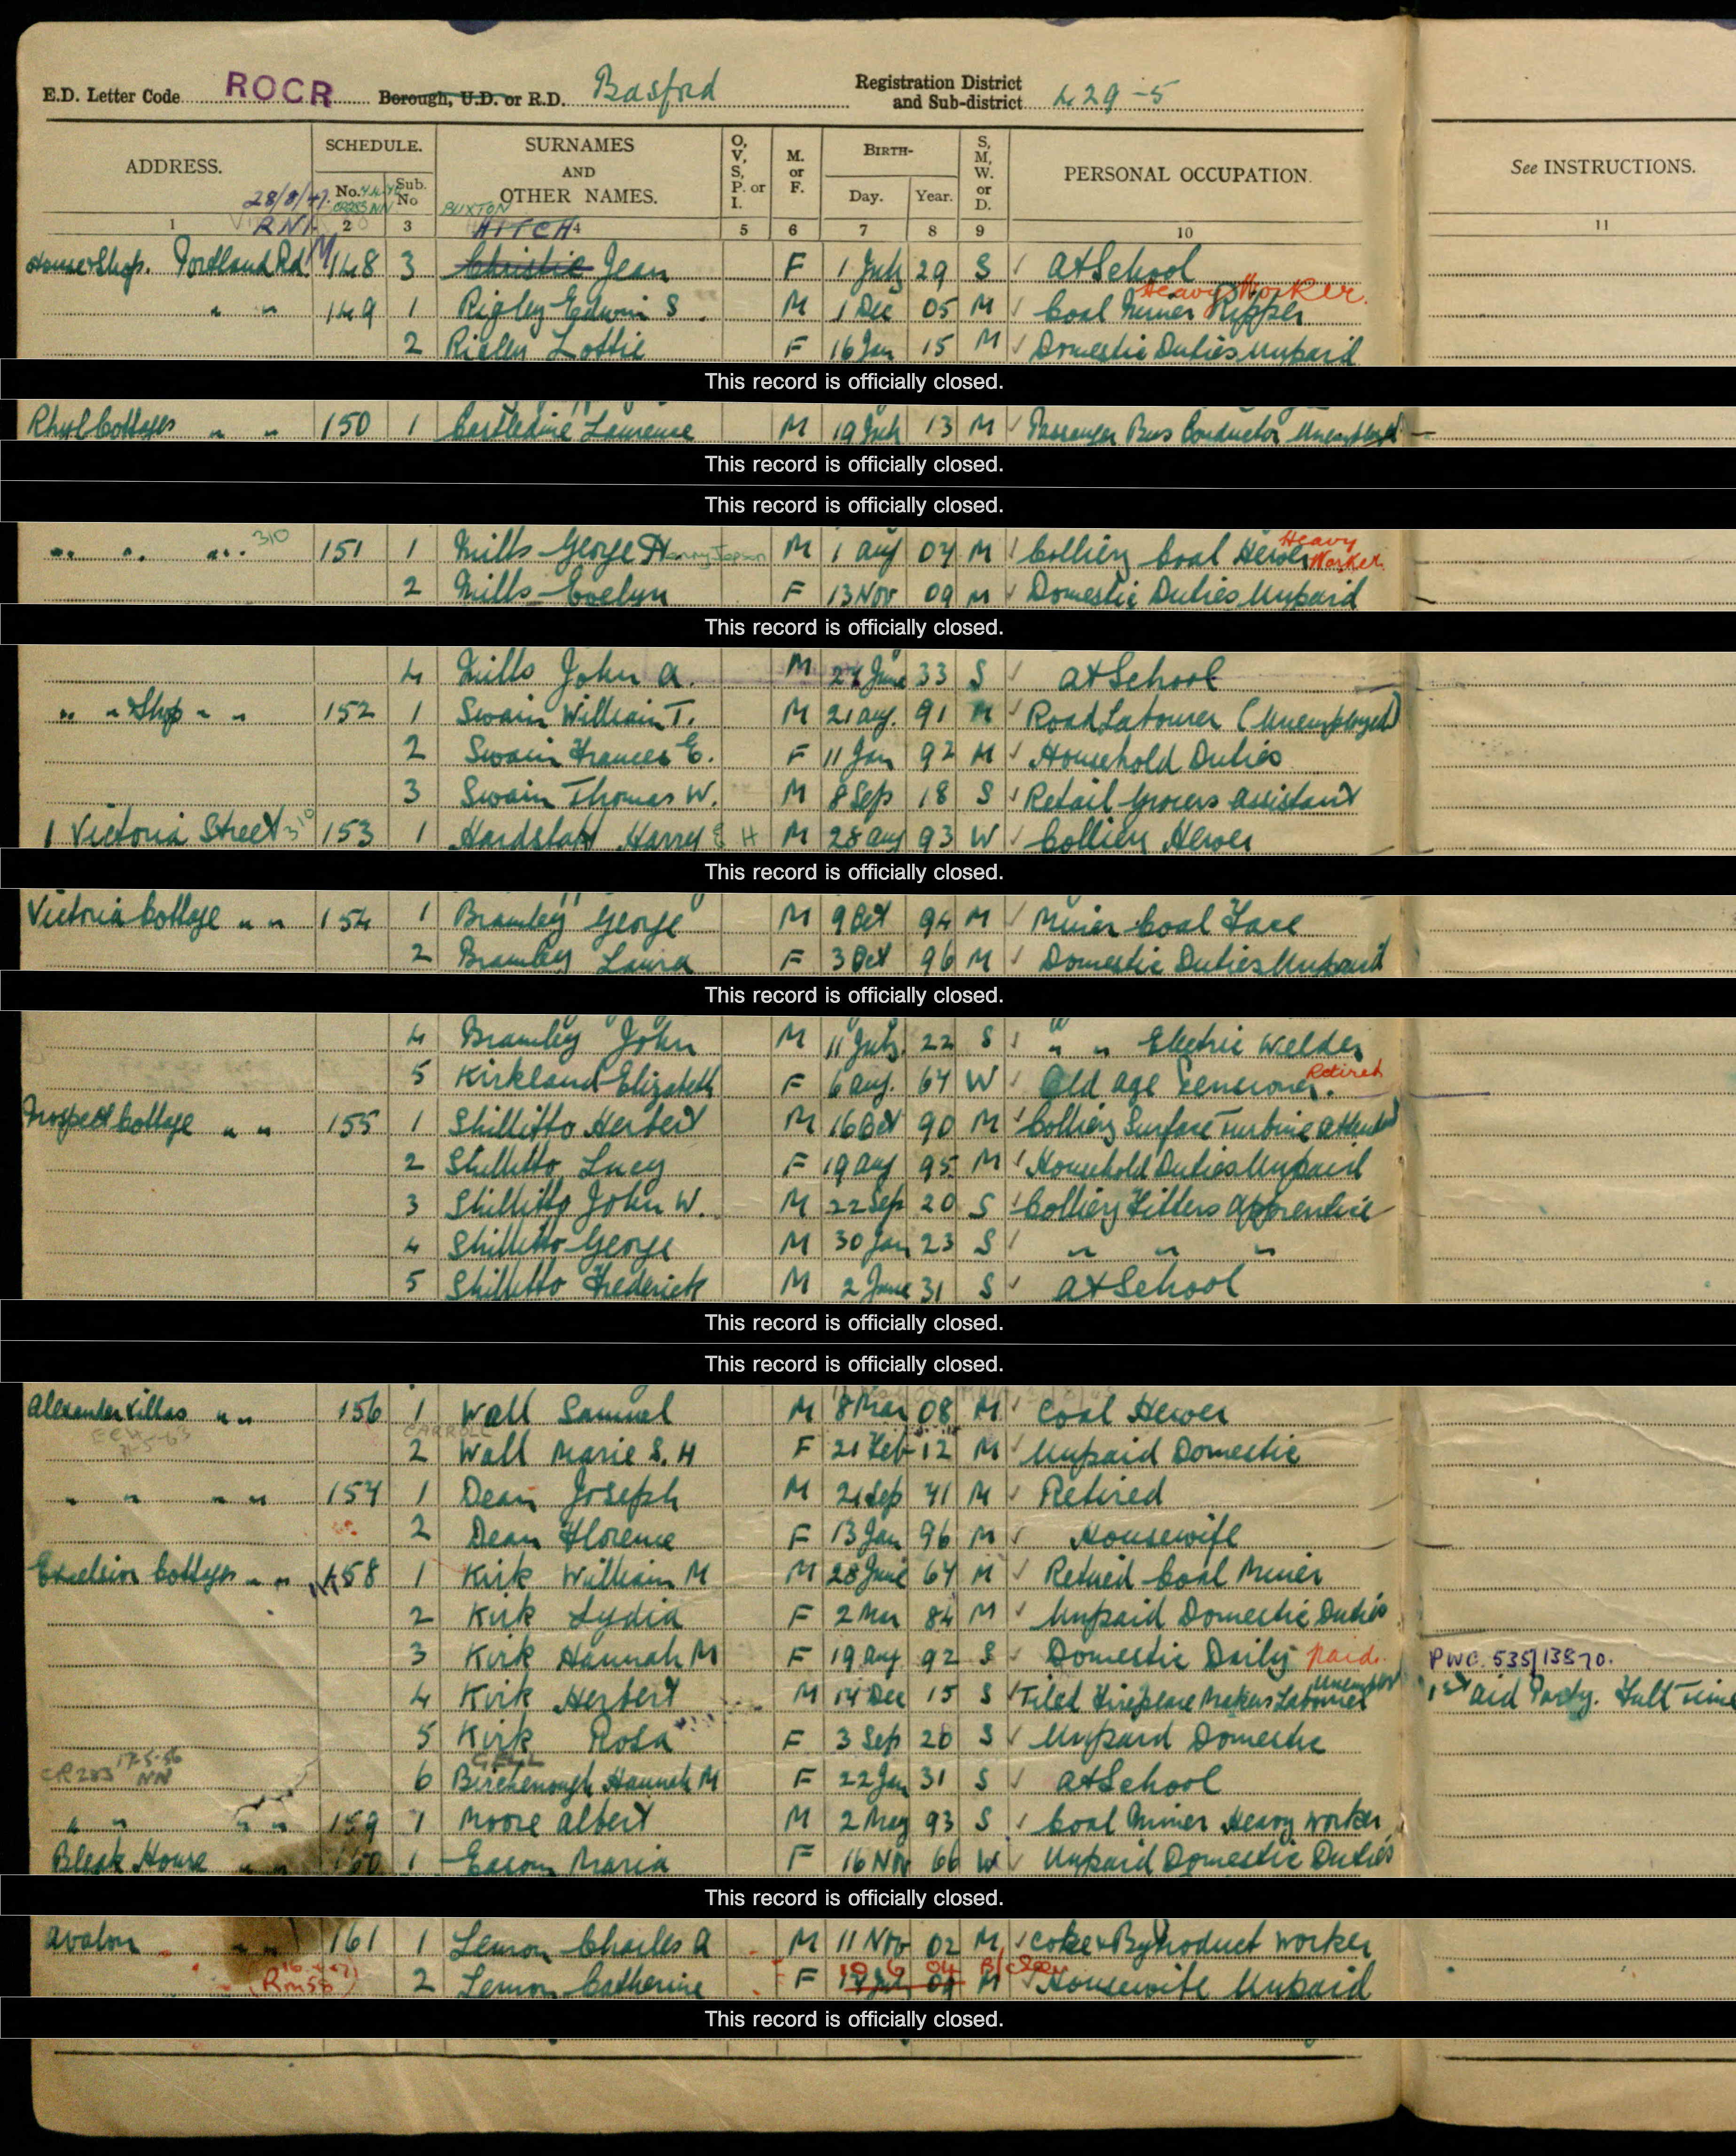 E.D. Letter Code ROCR Borough, U.D. or R.D. Basford Registration District and Sub-district 429-5
ADDRESS. SCHEDULE. SURNAMES AND OTHER NAMES. O, V, S, P. or I. M. or F. BIRTH- S, M, W. or D. PERSONAL OCCUPATION. See INSTRUCTIONS.
No. Sub. No Day. Year.
28/8/47. BUXTON
1 2 3 4 5 6 7 8 9 10 11
HITCH
House & Shop. Portland Rd 148 3 Christie Jean F 1 July 29 S At School
" " 149 1 Rigley Edwin S. M 1 Dec 05 M Coal Miner Ripper Heavy Worker.
2 Rigley Lottie F 16 Jan 15 M Domestic Duties Unpaid
This record is officially closed.
Rhyl Cottages " " 150 1 Castledine Laurence M 19 July 13 M Passenger Bus Conductor Unemployed
This record is officially closed.
This record is officially closed.
" " " 310 151 1 Mills George Harry Jepson M 1 Aug 07 M Colliery Coal Hewer Heavy Worker.
2 Mills Evelyn F 13 Nov 09 M Domestic Duties Unpaid
This record is officially closed.
4 Mills John A. M 27 June 33 S At School
" " Shop " " 152 1 Swain William T. M 21 Aug. 91 M Road Labourer (Unemployed)
2 Swain Frances E. F 11 Jan 92 M Household Duties
3 Swain Thomas W. M 8 Sep 18 S Retail Grocers Assistant
1 Victoria Street 310 153 1 Hardstaff Harry E H M 28 Aug 93 W Colliery Hewer
This record is officially closed.
Victoria Cottage " " 154 1 Bramley George M 9 Oct 94 M Miner Coal Face
2 Bramley Laura F 3 Oct 96 M Domestic Duties Unpaid
This record is officially closed.
4 Bramley John M 11 July 22 S " " Electric Welder
5 Kirkland Elizabeth F 6 Aug. 67 W Old Age Pensioner. Retired
Prospect Cottage " " 155 1 Shillitto Herbert M 16 Oct 90 M Colliery Surface Turbine Attendant
2 Shillitto Lucy F 19 Aug 95 M Household Duties Unpaid
3 Shillitto John W. M 22 Sep 20 S Colliery Fitters Apprentice
4 Shillitto George M 30 Jan 23 S " " "
5 Shillitto Frederick M 2 June 31 S At School
This record is officially closed.
This record is officially closed.
Alexander Villas " " 156 1 Wall Samuel M 8 Mar 08 M Coal Hewer
CARROLL
2 Wall Marie S. H F 21 Feb 12 M Unpaid Domestic
" " " " 157 1 Dean Joseph M 21 Sep 71 M Retired
2 Dean Florence F 13 Jan 96 M Housewife
Excelsior Cottages " " 158 1 Kirk William M M 28 June 67 M Retired Coal Miner
2 Kirk Lydia F 2 Mar 84 M Unpaid Domestic Duties
3 Kirk Hannah M F 19 Aug 92 S Domestic Daily paid. PWC. 535/13570.
4 Kirk Herbert M 14 Dec 15 S Tiled Fireplace Makers Labourer Unemployed 1st Aid Party. Full Time
5 Kirk Rosa F 3 Sep 26 S Unpaid Domestic
CR283 17-5-56 NN GELL
6 Birchenough Hannah M F 22 Jan 31 S At School
" " " " 159 1 Moore Albert M 2 May 93 S Coal Miner Heavy Worker
Bleak House " " 160 1 Eason Maria F 16 Nov 66 W Unpaid Domestic Duties
This record is officially closed.
Avalon " " 161 1 Lemon Charles A M 11 Nov 02 M Coke & Byproduct Worker
2 Lemon Catherine F M Housewife Unpaid
This record is officially closed.